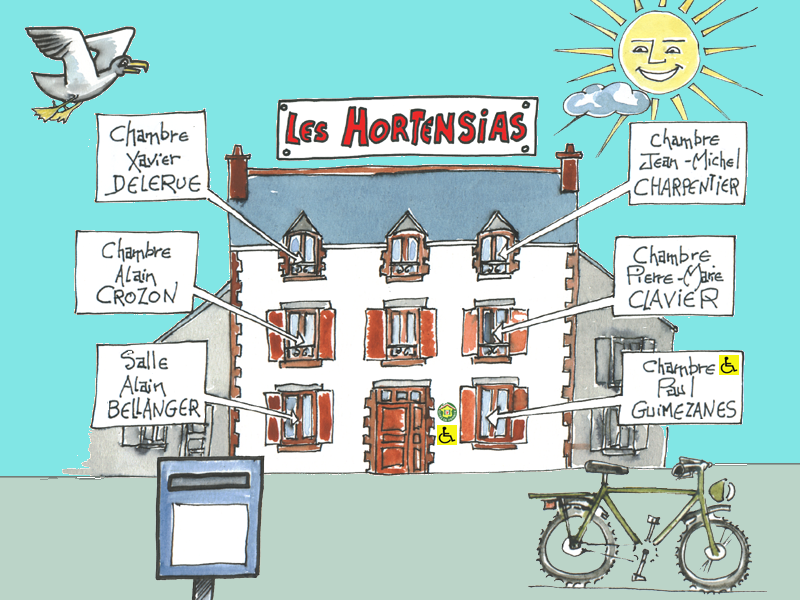 LES HORTENSIAS
Chambre
Xavier
DELERUE
Chambre
Jean-Michel
CHARPENTIER
Chambre
Alain
CROZON
Chambre
Pierre-Marie
CLAVIER
Salle
Alain
BELLANGER
Chambre
Paul
GUIMEZANES